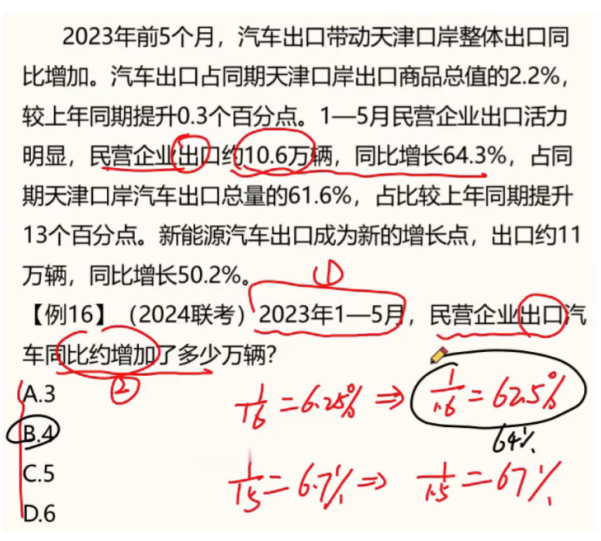 2023年前5个月，汽车出口带动天津口岸整体出口同
比增加。汽车出口占同期天津口岸出口商品总值的2.2%，
较上年同期提升0.3个百分点。1—5月民营企业出口活力
明显，民营企业出口约10.6万辆，同比增长64.3%，占同
期天津口岸汽车出口总量的61.6%，占比较上年同期提升
13个百分点。新能源汽车出口成为新的增长点，出口约11
万辆，同比增长50.2%。
①
【例16】（2024联考）2023年1—5月，民营企业出口汽
车同比约增加了多少万辆？
②
A.3
1/16=6.25% ⇒ 1/1.6=62.5%
B.4
64%
C.5
1/15=6.7% ⇒ 1/1.5=67%
D.6